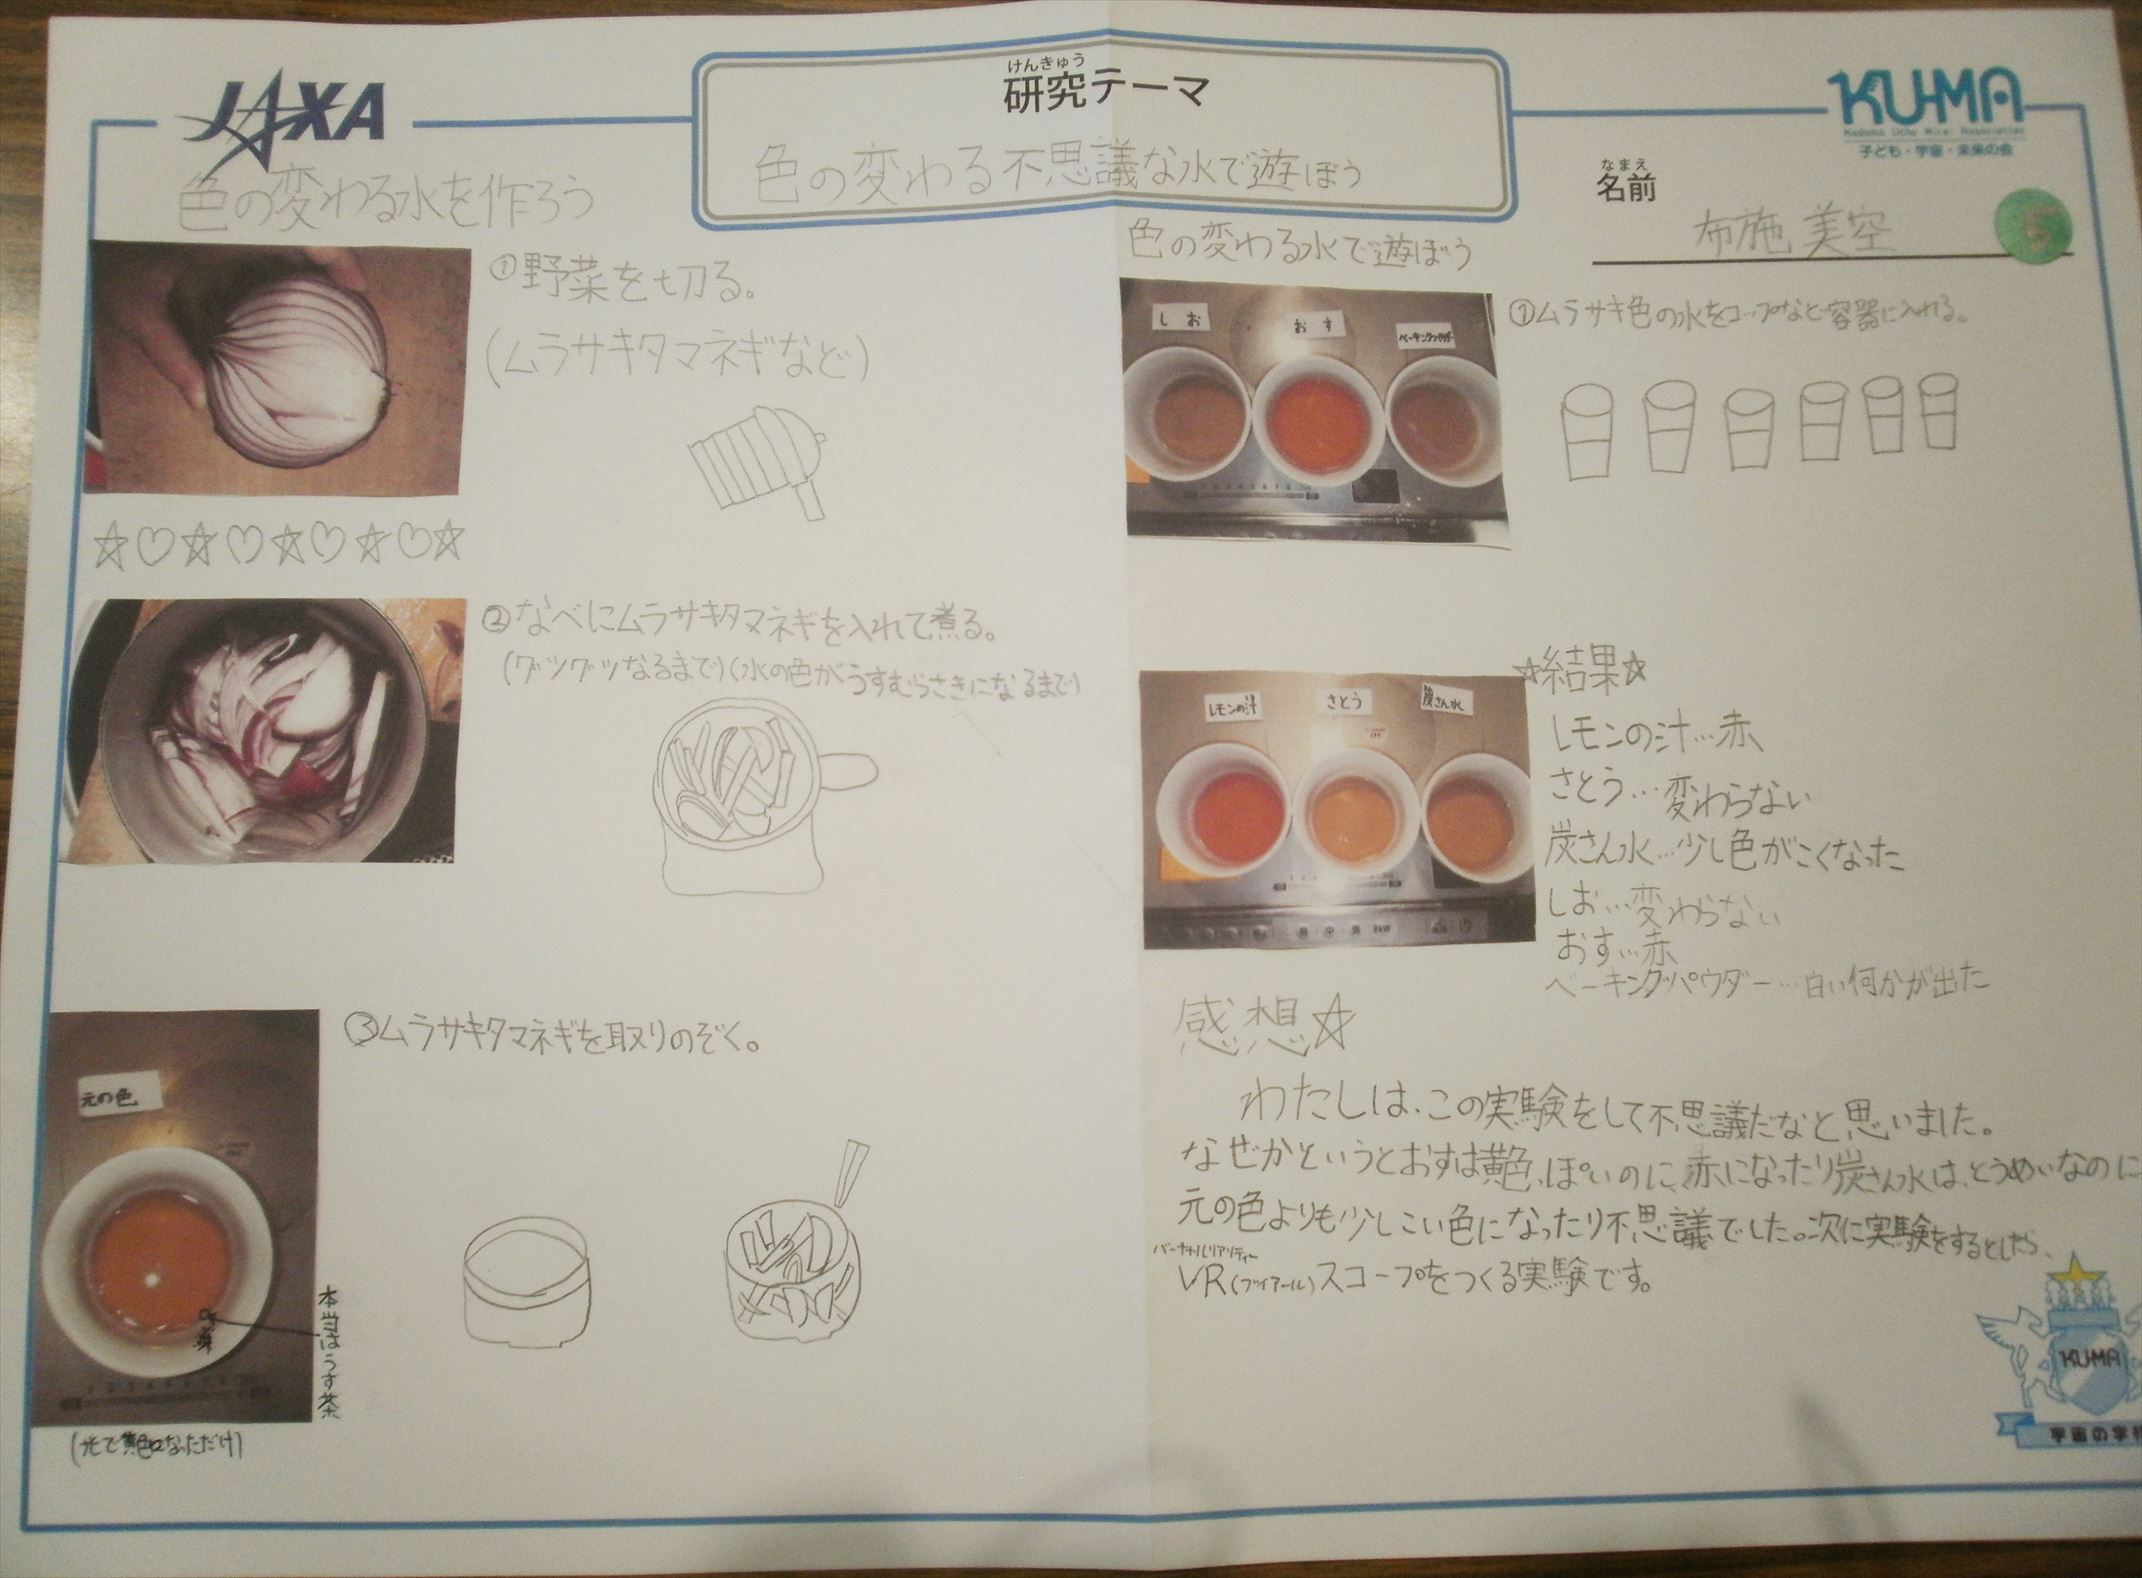 JAXA
けんきゅう
研究テーマ
色の変わる不思議な水で遊ぼう
KU-MA
Kodomo Uchu Mirai Association
子ども・宇宙・未来の会
なまえ
名前
布施 美空
5
色の変わる水を作ろう
①野菜を切る。
(ムラサキタマネギなど)
②なべにムラサキタマネギを入れて煮る。
(グツグツなるまで)(水の色がうすむらさきになるまで)
元の色
③ムラサキタマネギを取りのぞく。
本当はうす茶
(光で黄色になっただけ)
色の変わる水で遊ぼう
しお
おす
ベーキングパウダー
①ムラサキ色の水をコップなど容器に入れる。
レモンの汁
さとう
炭さん水
☆結果☆
レモンの汁…赤
さとう…変わらない
炭さん水…少し色がこくなった
しお…変わらない
おす…赤
ベーキングパウダー…白い何かが出た
感想☆
わたしは、この実験をして不思議だなと思いました。
なぜかというとおすは黄色っぽいのに、赤になったり炭さん水は、とうめいなのに
元の色よりも少しこい色になったり不思議でした。次に実験をするとしたら、
バーチャルリアリティー
VR(ブイアール)スコープをつくる実験です。
KU-MA
宇宙の学校